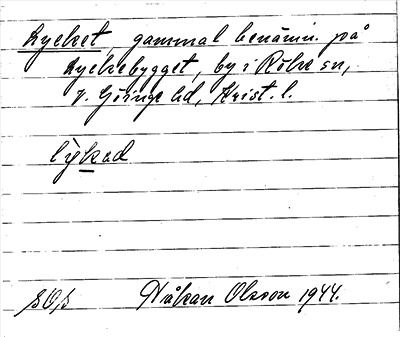 Lycket, gammal benämn. på
Lyckebygget, by i Röke sn,
V. Göinge hd, Krist. l.
lỳkəd
SOS Håkan Olsson 1944.